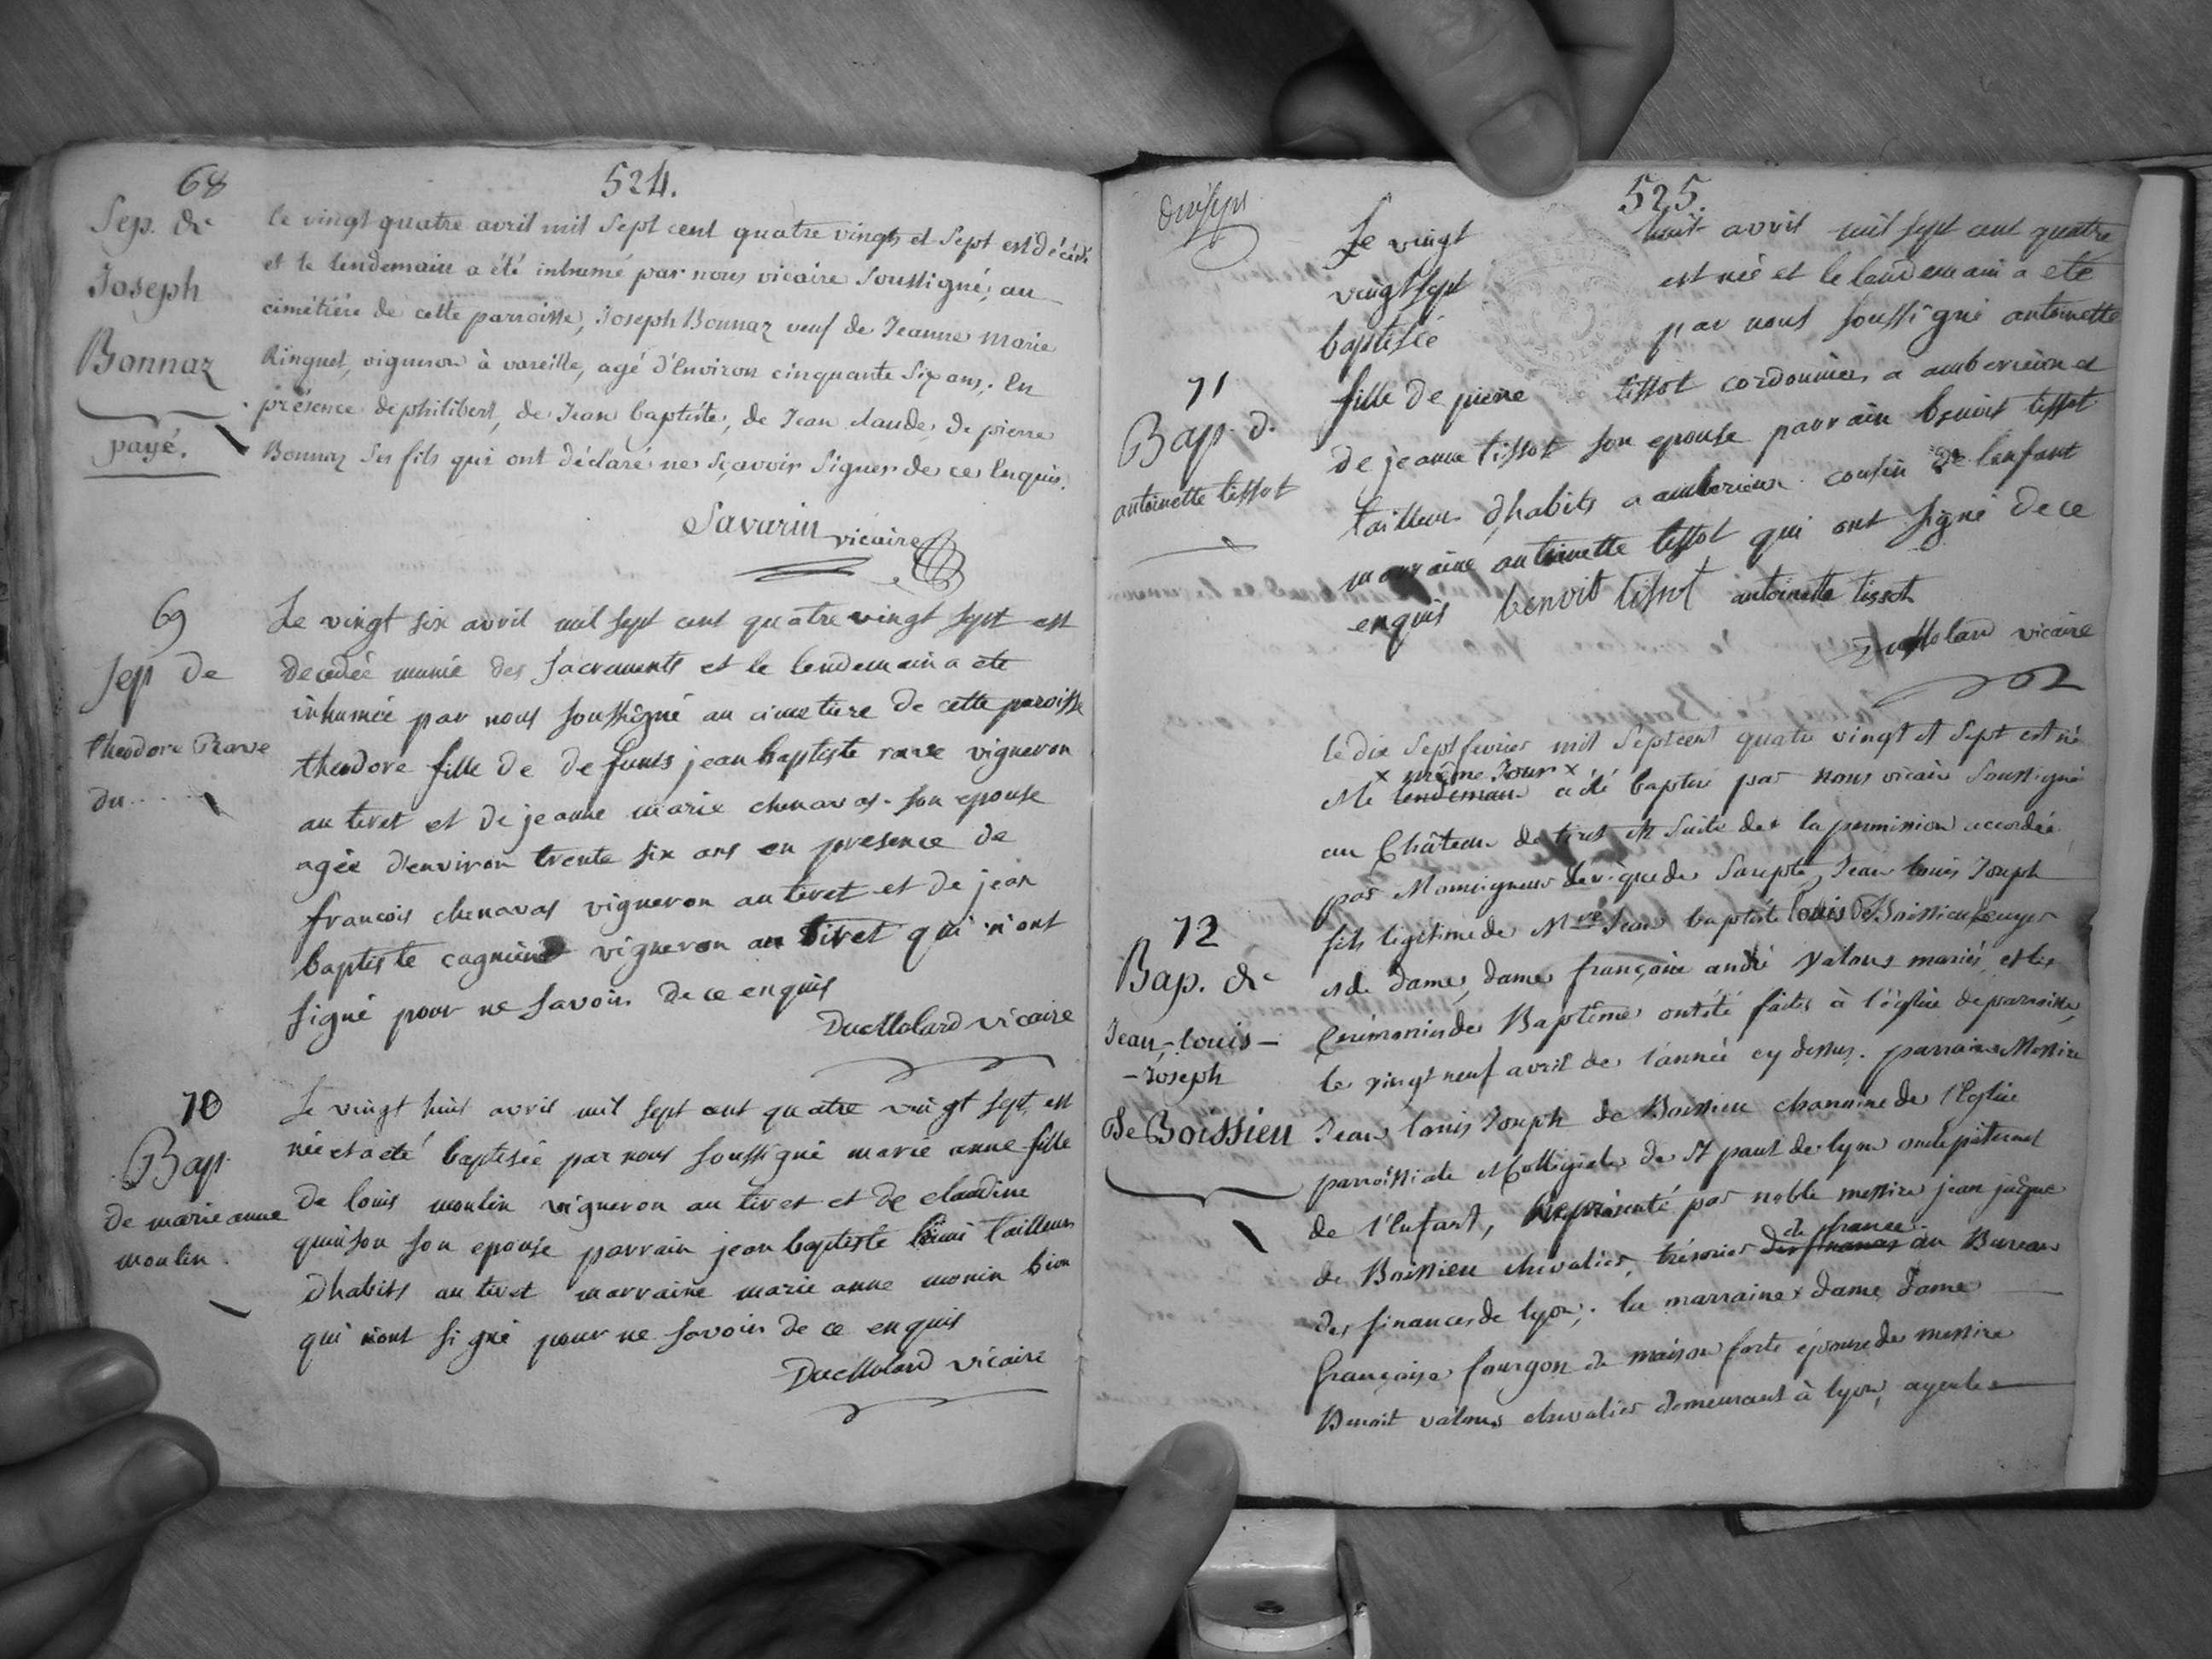 68
524.
Sep. de
Joseph
Bonnaz
payé.
le vingt quatre avril mil Sept cent quatre vingts et Sept est décédé
et le lendemain a été inhumé par nous vicaire Soussigné, au
cimétiére de cette parroisse, Joseph Bonnaz veuf de Jeanne Marie
Ringuet, vigneron à vareille, agé d'Environ cinquante Six ans. En
présence de philibert, de Jean baptiste, de Jean claude, de pierre
Bonnaz Ses fils qui ont déclaré ne Sçavoir Signer de ce Enquis.
Savarin vicaire
69
Sep de
theodore Rave
du
Le vingt six avril mil sept cent quatre vingt sept est
decedée munie des sacrements et le lendemain a ete
inhumée par nous soussigné au cimetiere de cette paroisse
theodore fille de defunts jean baptiste rave vigneron
au tiret et de jeanne marie chenavas son epouse
agée d'environ trente six ans en presence de
francois chenavas vigneron au tiret et de jean
baptiste vigneron au tiret qui n'ont
signé pour ne savoir de ce enquis
Ducmolard vicaire
70
Bap
de marie anne
moulin
Le vingt huit avril mil sept cent quatre vingt sept est
née et a eté baptisée par nous soussigné marie anne fille
de louis moulin vigneron au tiret et de claudine
quinson son epouse parrain jean baptiste tailleur
dhabits au tiret marraine marie anne monin
qui n'ont signé pour ne savoir de ce enquis
Ducmolard vicaire
525.
Le vingt huit avril mil sept cent quatre
vingt sept est née et le lendemain a ete
baptisée par nous soussigné antoinette
71
Bap. d.
antoinette tissot
fille de pierre tissot cordonnier a amberieu et
de jeanne tissot son epouse parrain benoit tissot
tailleur dhabits a amberieu cousin de lenfant
marraine antoinette tissot qui ont signé de ce
enquis benoit tissot antoinette tissot
Ducmolard vicaire
72
Bap. de
Jean-louis-
-Joseph
De Boissieu
le dix Sept fevrier mil Sept cent quatre vingt et Sept est né
x même Jour x
et le lendemain a été baptisé par nous vicaire Soussigné
au Château de tiret en Suite de la permission accordée
par Monseigneur levêque de Sarepte, Jean louis Joseph
fils légitime de Mre Jean baptiste louis De Boissieu Ecuyer
et de dame, dame françoise andré valous mariés, et les
Cérémonies de Baptême ont été faites à l'église de parroisse,
le vingt neuf avril de l'année cy dessus. parrain Messire
Jean louis Joseph de Boissieu chanoine de l'Eglise
parroissiale et Collégiale de St paul de lyon oncle paternel
de l'Enfant, Représenté par noble messire jean
de france
de Boissieu chevalier, trésorier des finances au Bureau
des finances de lyon; la marraine dame dame
françoise fourgon de maison forte épouse de messire
Benoit valous chevalier demeurant à lyon, ayeule